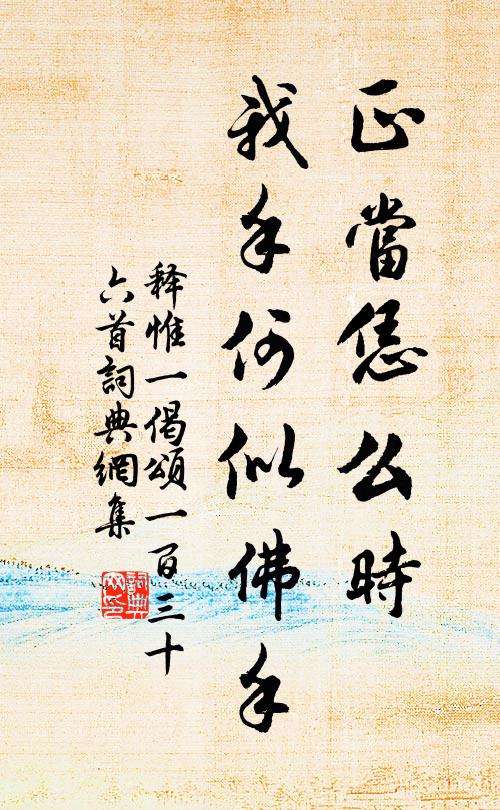 正當恁么時
我手何似佛手
释惟一偈頌一百三十
六首詞典網集